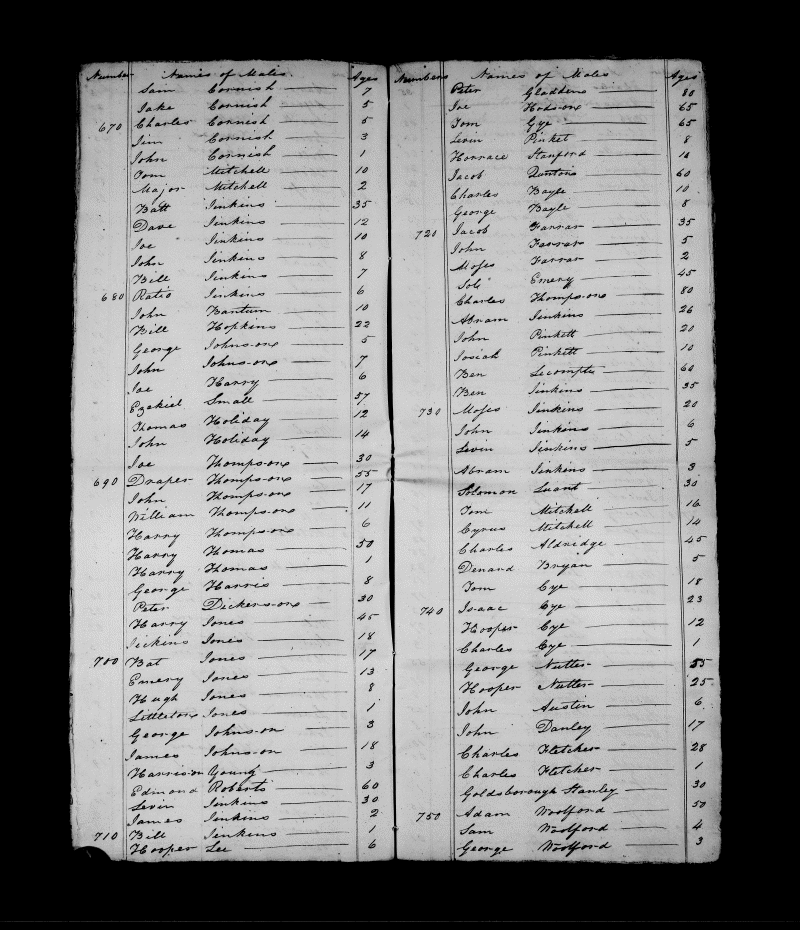 Number Names of Males Ages
Sam Cornish 7
Jake Cornish 5
670 Charles Cornish 5
Jim Cornish 3
John Cornish 1
Tom Mitchell 10
Major Mitchell 2
Batt Jinkins 35
Dave Jinkins 12
Joe Jinkins 10
John Jinkins 8
Bill Jinkins 7
680 Ratio Jinkins 6
John Bantum 10
Bill Hopkins 22
George Johnson 5
John Johnson 7
Joe Harry 6
Ezekiel Small 57
Thomas Holiday 12
John Holiday 14
Joe Thompson 30
690 Draper Thompson 55
John Thompson 17
William Thompson 11
Harry Thompson 6
Harry Thomas 50
Harry Thomas 1
George Harris 8
Peter Dickerson 30
Harry Jones 45
Jickins Jones 18
700 Bat Jones 17
Emery Jones 13
Hugh Jones 8
Littleton Jones 1
George Johnson 3
James Johnson 18
Harrison Young 3
Edmond Roberts 60
Levin Jinkins 30
James Jinkins 2
710 Bill Jinkins 1
Hooper Lee 6
Numbers Names of Males Ages
Peter Gladdens 80
Joe Hodson 65
Tom Gye 65
Levin Pinket 8
Horrace Stanford 10
Jacob 60
Charles Bayle 10
George Bayle 8
720 Jacob Farrar 35
John Farrar 5
Moses Farrar 2
Sol Emery 45
Charles Thompson 80
Abram Jinkins 26
John Pinkett 20
Josiah Pinkett 10
Ben Lecompte 60
Ben Jinkins 35
730 Moses Jinkins 20
John Jinkins 6
Levin Jinkins 5
Abram Jinkins 3
Solomon 30
Tom Mitchell 16
Cyrus Mitchell 14
Charles Aldridge 45
Denard Bryan 5
Tom Cye 18
740 Isaac Cye 23
Hooper Cye 12
Charles Cye 1
George Nutter 55
Hooper Nutter 25
John Austin 6
John Danley 17
Charles Fletcher 28
Charles Fletcher 1
Goldsborough Stanley 30
750 Adam Woolford 50
Sam Woolford 4
George Woolford 3